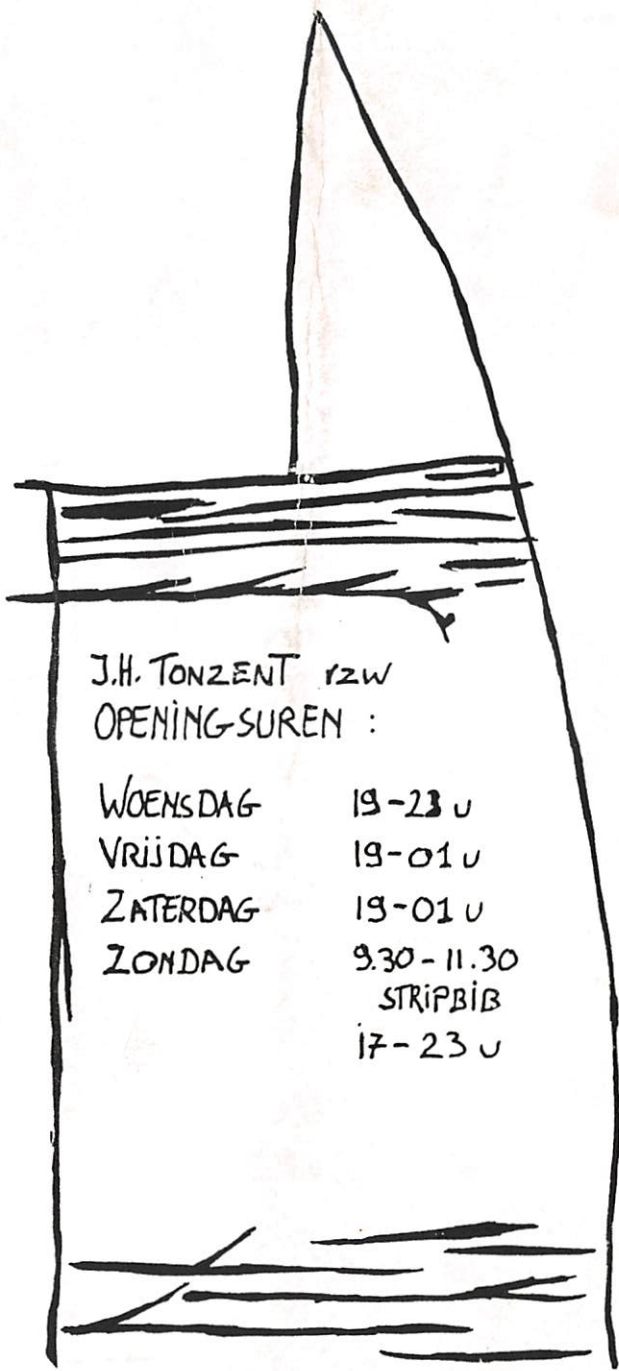 J.H. TONZENT vzw
OPENINGSUREN :
WOENSDAG 19-23 u
VRIJDAG 19-01 u
ZATERDAG 19-01 u
ZONDAG 9.30-11.30
STRIPBIB
17-23 u